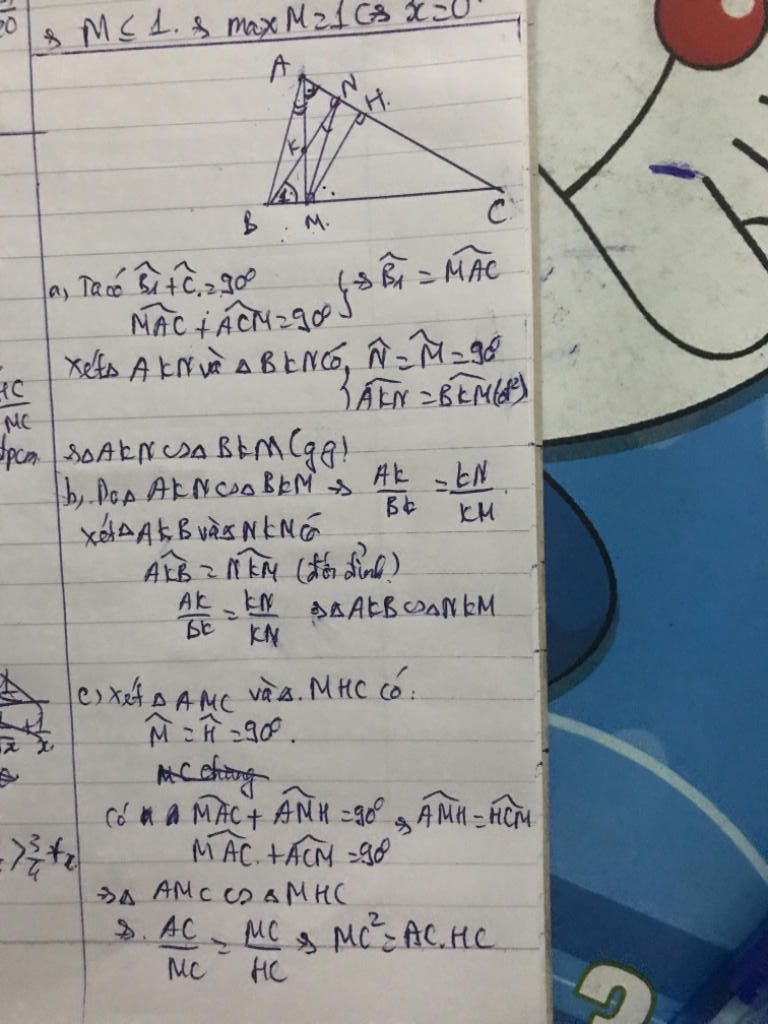 20
⇒ M ≤ 1. ⇒ max M = 1 ⇔ x = 0
A
N
H.
K
B
1
M.
C
a, Ta có B̂1 + Ĉ = 90°
MAC + ACM = 90° } ⇒ B̂1 = MAC
Xét Δ AKN và Δ BKN có { N̂ = M̂ = 90°
AKN = BKM (đ²)
HC
MC
đpcm
⇒ Δ AKN ∽ Δ BKM (gg)
b, Do Δ AKN ∽ Δ BKM ⇒ AK/BK = KN/KM
Xét Δ AKB và Δ NKM có
AKB = NKM (đối đỉnh)
AK/BK = KN/KN ⇒ Δ AKB ∽ Δ NKM
c) Xét Δ AMC và Δ. MHC có:
M̂ = Ĥ = 90°.
MC chung
Có MAC + AMH = 90° ⇒ AMH = HCM
MAC. + ACM = 90°
> 3/4 +x
⇒ Δ AMC ∽ Δ MHC
⇒. AC/MC = MC/HC ⇒ MC² = AC.HC
?